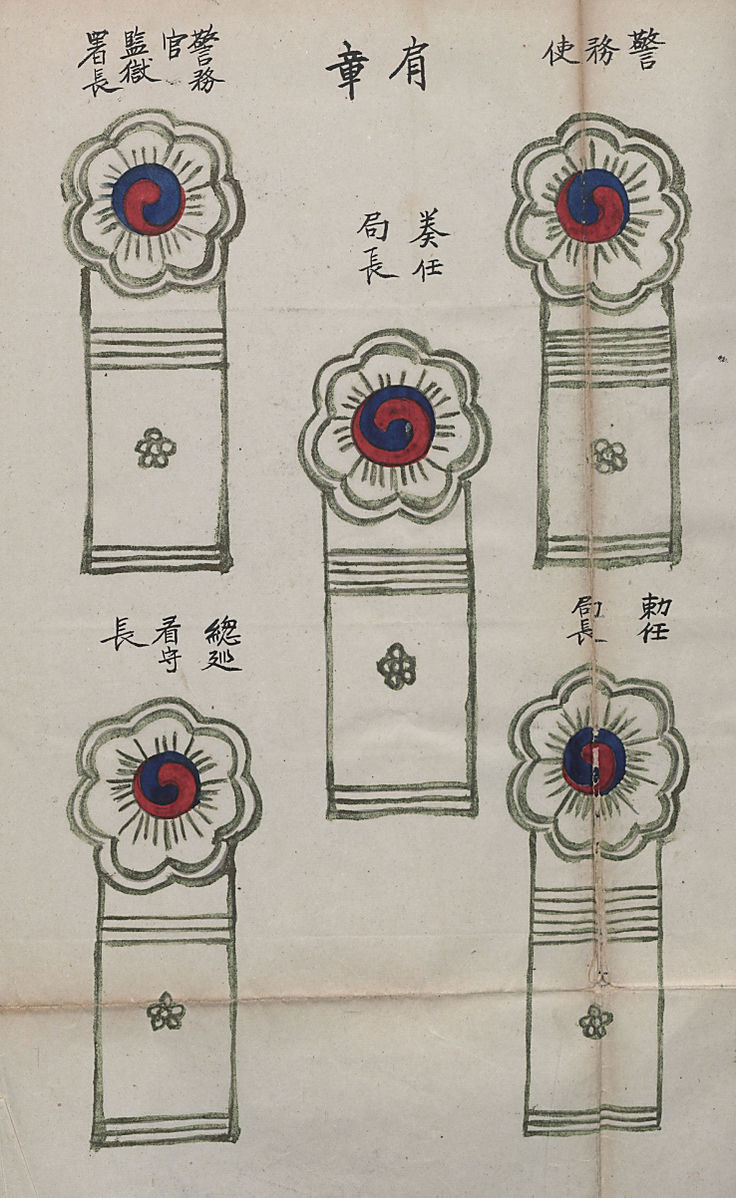 肩章
警務使
勅任
局長
奏任
局長
警務
官
監獄
署長
總廵
看守
長